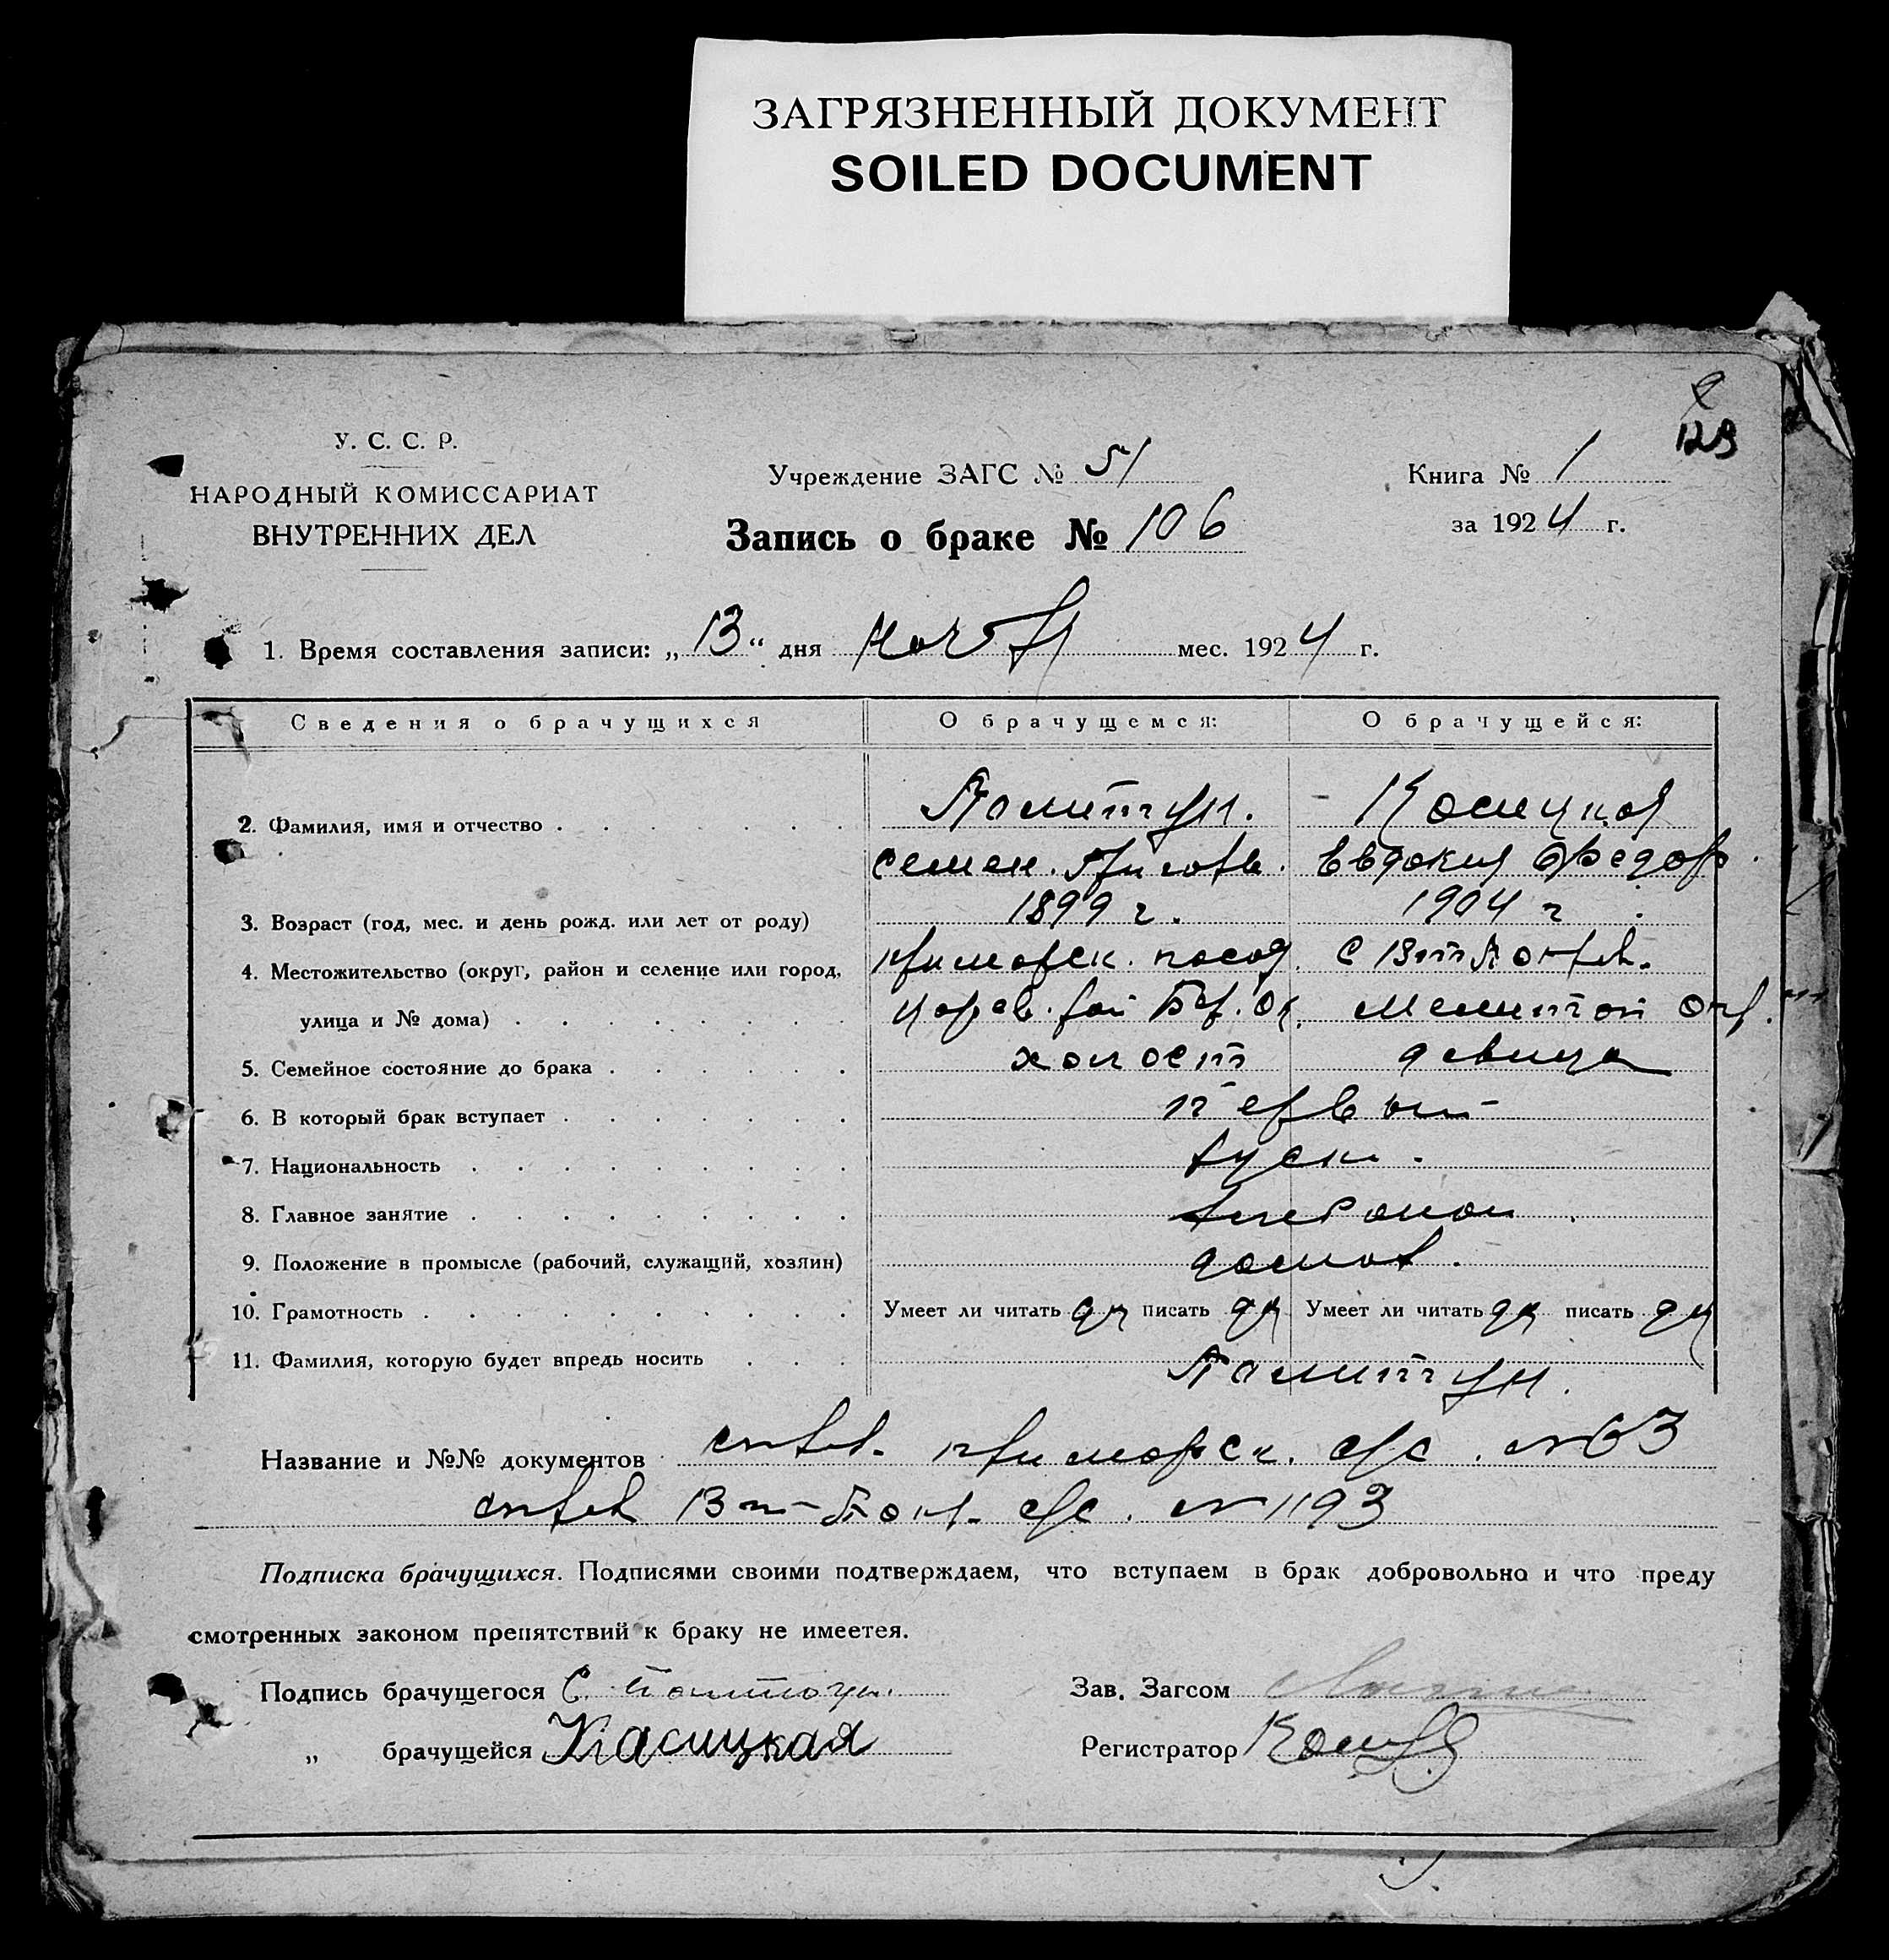 ЗАГРЯЗНЕННЫЙ ДОКУМЕНТ
SOILED DOCUMENT
129
У. С. С. Р.
НАРОДНЫЙ КОМИССАРИАТ
ВНУТРЕННИХ ДЕЛ
Учреждение ЗАГС № 51
Запись о браке № 106
Книга № 1
за 1924 г.
1. Время составления записи: „13“ дня ноября мес. 1924 г.
Сведения о брачущихся О брачущемся: О брачущейся:
2. Фамилия, имя и отчество Политун. Косицкая
Семен. Григорьв. Евдокия Федор.
3. Возраст (год, мес. и день рожд. или лет от роду) 1899 г. 1904 г.
4. Местожительство (округ, район и селение или город, приморск. посад. с
улица и № дома) Мелитоп Окр.
5. Семейное состояние до брака холост девица
6. В который брак вступает первый
7. Национальность русск.
8. Главное занятие
9. Положение в промысле (рабочий, служащий, хозяин)
10. Грамотность Умеет ли читать да писать да Умеет ли читать да писать да
11. Фамилия, которую будет впредь носить Политун.
Название и №№ документов приморск. с/с. № 63
с/с. № 1193
Подписка брачущихся. Подписями своими подтверждаем, что вступаем в брак добровольно и что преду
смотренных законом препятствий к браку не имеетея.
Подпись брачущегося С.
Зав. Загсом
„ брачущейся Касицкая
Регистратор